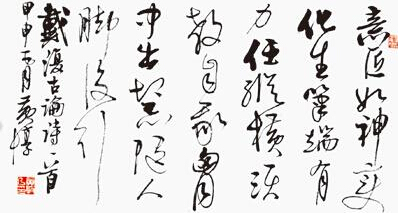 意匠如神變
化生筆端有
力任縱橫須
教自我胸
中出切忌隨人
脚後行
戴復古論詩一首
甲申 月黄惇